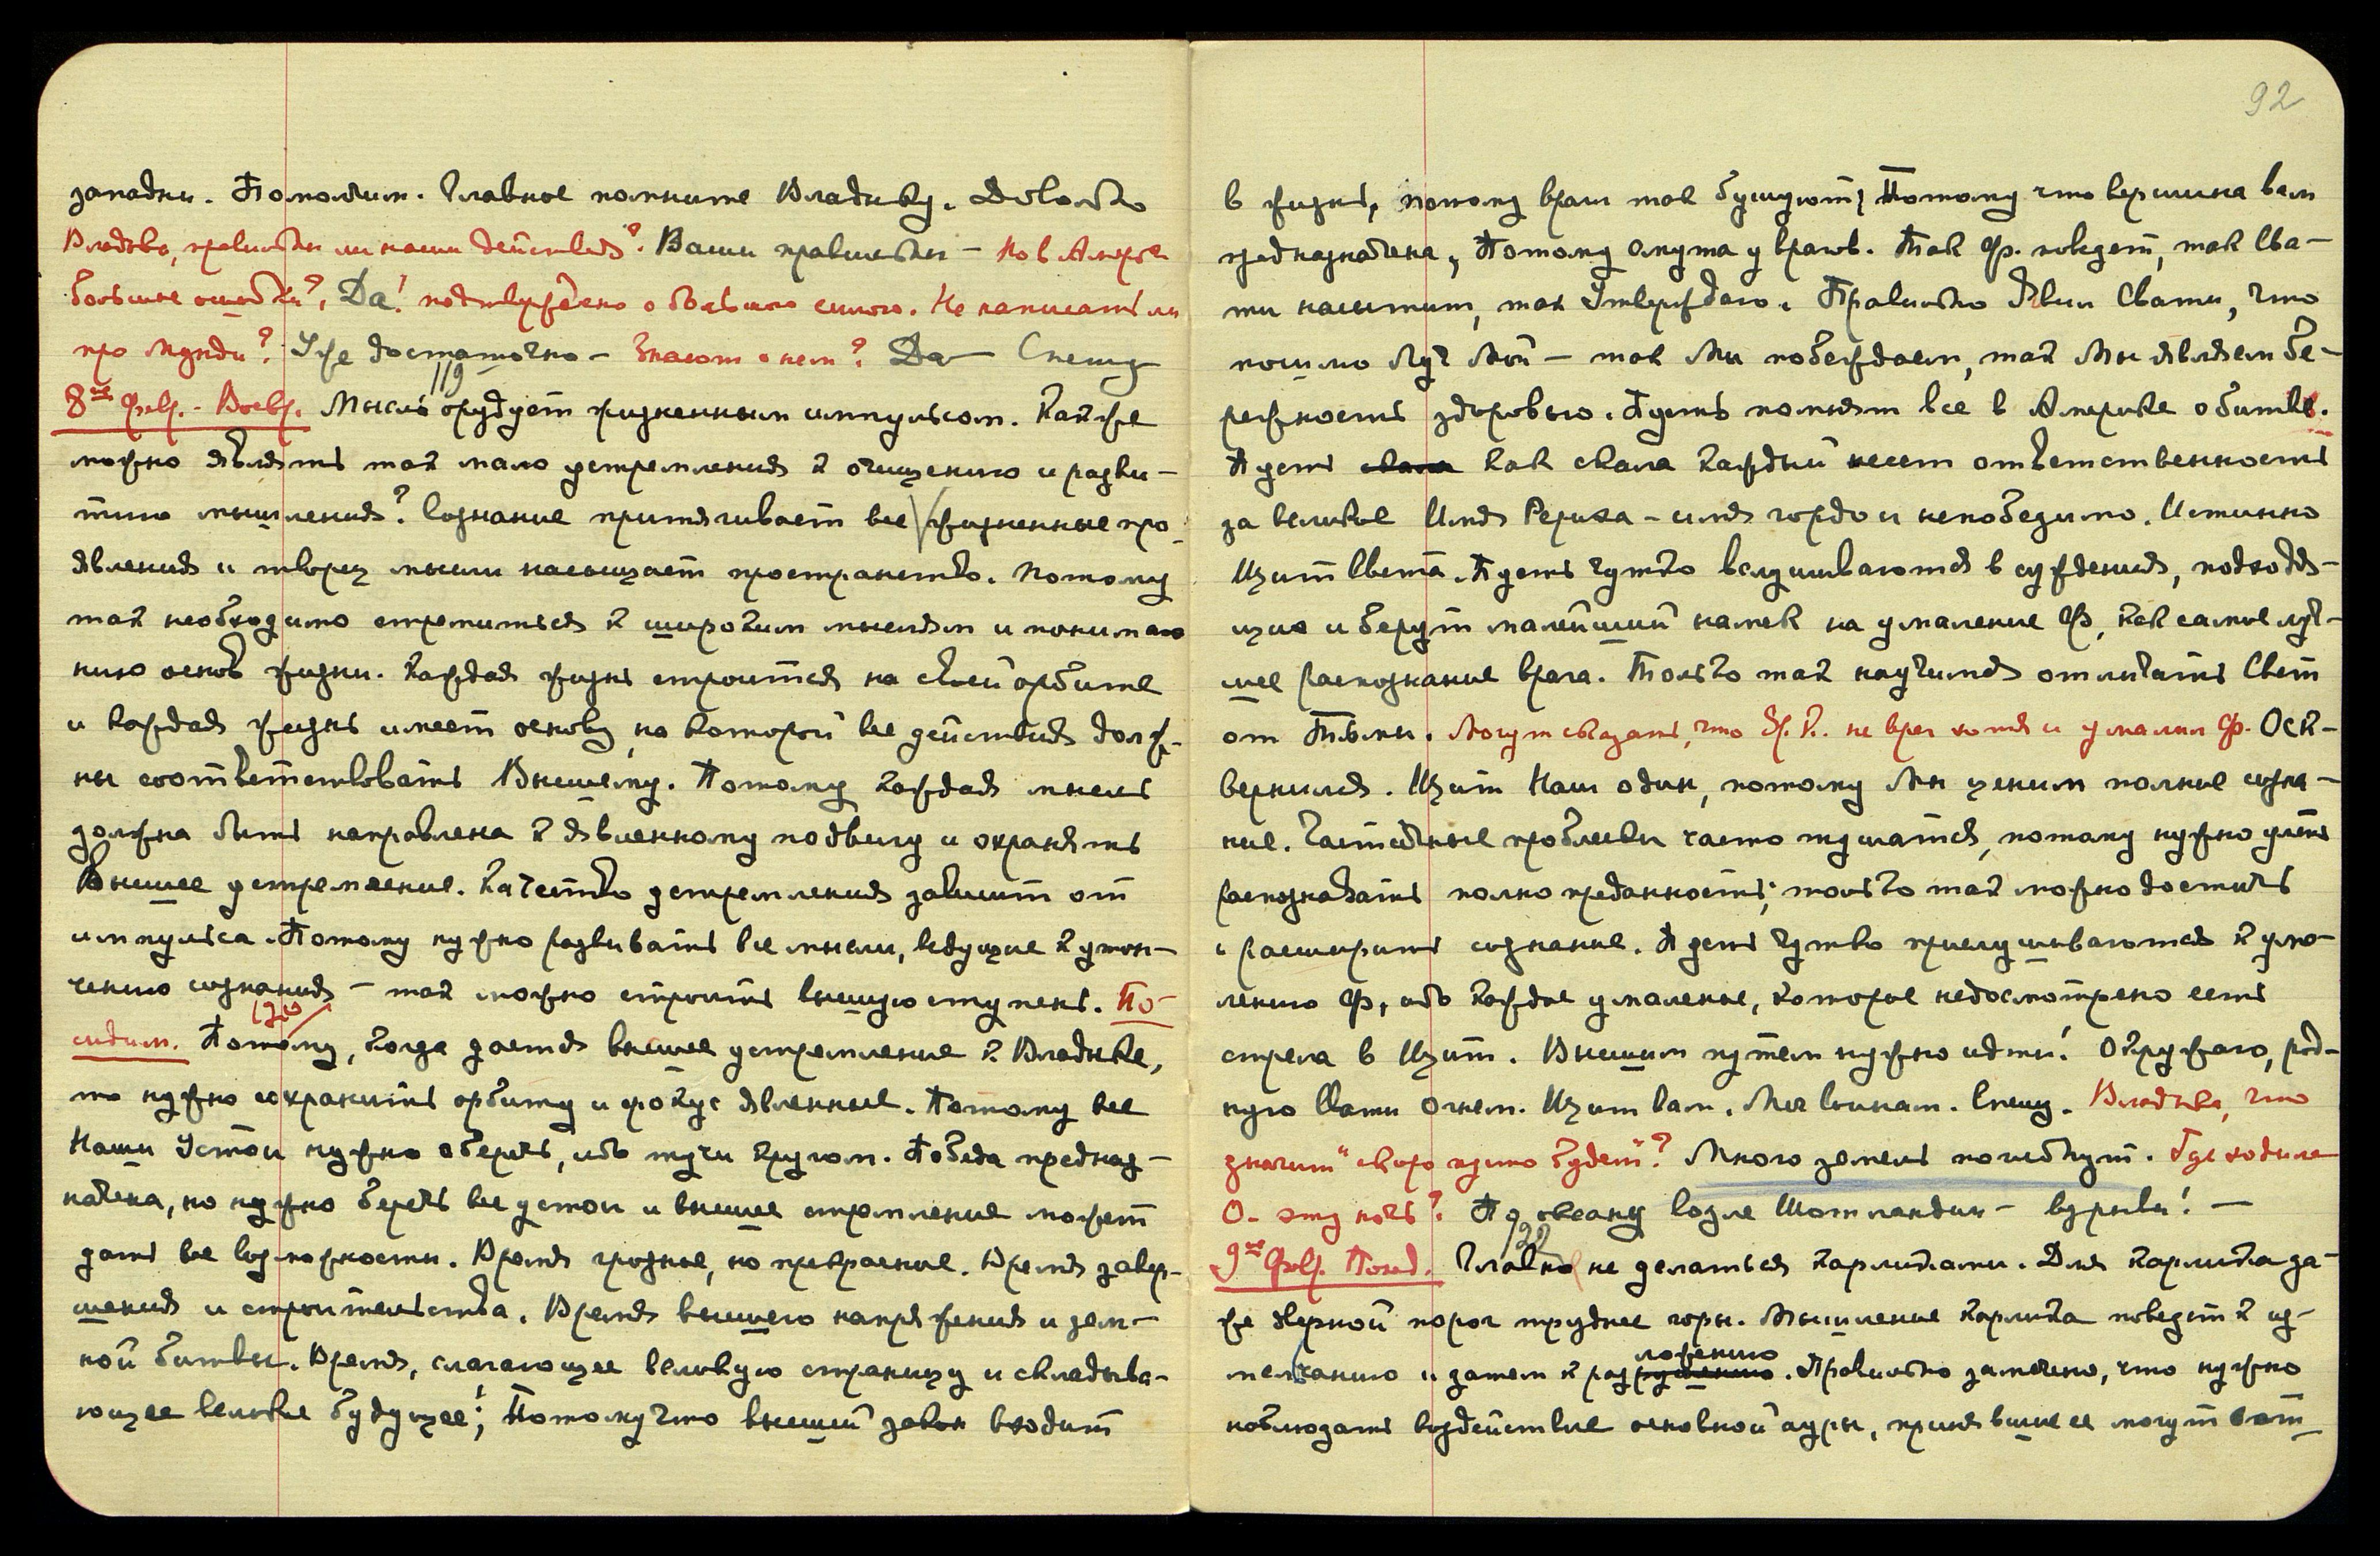 западни. Помолчим. Главное помните Владыку. Довольно
Владыка, правильны ли наши действия? Ваши правильны – но в Америке
большие ошибки? Да! подтверждено о большою силою. Не написать ли
про Мунди? Уже достаточно – Знают о нем? Да – Спешу
119
8ое Февр. - Воскр. Мысль орудует жизненным импульсом. Как же
можно являть так мало устремления к очищению и разви-
тию мышления? Сознание притягивает все жизненные про-
явления и творец мысли насыщает пространство. Потому
так необходимо стремиться к широким мыслям и понима
нию основ жизни. Каждая жизнь строится на своей орбите
и каждая жизнь имеет основу на которой все действия долж-
ны соответствовать Высшему. Потому каждая мысль
должна быть направлена к явленному подвигу и охранять
Высшее устремление. Качество устремления зависит от
импульса. Потому нужно развивать все мысли, ведущие к утон-
чению сознания – так можно строить высшую ступень. По-
120
сидим. Потому, когда дается высшее устремление к Владыке,
то нужно сохранить орбиту и фокус явленные. Потому все
Наши Устои нужно оберечь, ибо тучи кругом. Победа предназ-
начена, но нужно беречь все устои и высшее стремление может
дать все возможности. Время грозное, но прекрасное. Время завер-
шения и строительства. Время высшего напряжения и зем-
ной битвы. Время, слагающее великую страницу и складыва-
ющее великое будущее! Потому что высший закон входит
92
в жизнь, потому враги так бушуют! Потому что вершина вам
предназначена, Потому омута у врагов. Так Ф. поведет, так Сва-
ти насытит, так Утверждаю. Правильно Яви Свати, что
носимо Луч Мой – так Мы побеждаем, так Мы являем бе-
режность здоровью. Пусть помнят все в Америке о битве.
Пусть скала как скала каждый несет ответственность
за великое Имя Рериха – имя гордо и непобедимо. Истинно
Щит Света. Пусть чутко вслушиваются в суждения, подходя-
щих и берут малейший намек на умаление Ф, как самое луч-
шее распознание врага. Только так научимся отличать Свет
от Тьмы. Могут сказать, что Бр. Р. не враг хотя и умалил Ф. Оск-
вернился. Щит Наш один, потому Мы ценим полное созна-
ние. Частичные проблески часто тушатся, потому нужно уметь
распознавать полно преданность; только так можно достичь
и расширить сознание. Пусть чутко прислушиваются к ума-
лению Ф, ибо каждое умаление, которое недосмотрено есть
стрела в Щит. Высшим путем нужно идти! Окружаю, род-
ную Свати Огнем. Щит вам. Меч воинам. Спешу. Владыка, что
значит "скоро пусто будет"? Много земель погибнут. Где ходила
О. эту ночь? По океану возле Шотландии – взрывы! –
122
9ое Февр. Понед. Главно не делаться карликами. Для карлика да-
же дверной порог труднее горы. Мышление карлика поведет к из-
ложению
мельчанию и затем к разрушению. Правильно замечено, что нужно
наблюдать воздействие основной ауры, принявшие ее могут